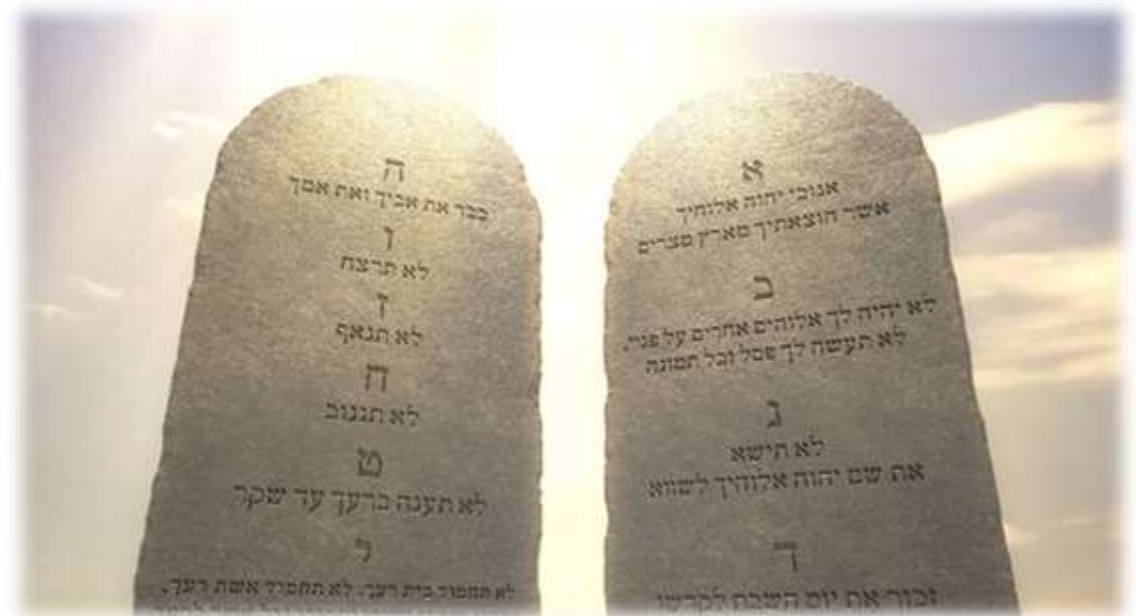 א
אנוכי יהוה אלוהיך
אשר הוצאתיך מארץ מצרים
ב
לא יהיה לך אלוהים אחרים על פניי.
לא תעשה לך פסל וכל תמונה
ג
לא תישא
את שם יהוה אלוהיך לשווא
ד
זכור את יום השבת לקדשו
ה
כבד את אביך ואת אמך
ו
לא תרצח
ז
לא תנאף
ח
לא תגנוב
ט
לא תענה ברעך עד שקר
ל
לא תחמוד בית רעך. לא תחמוד אשת רעך.